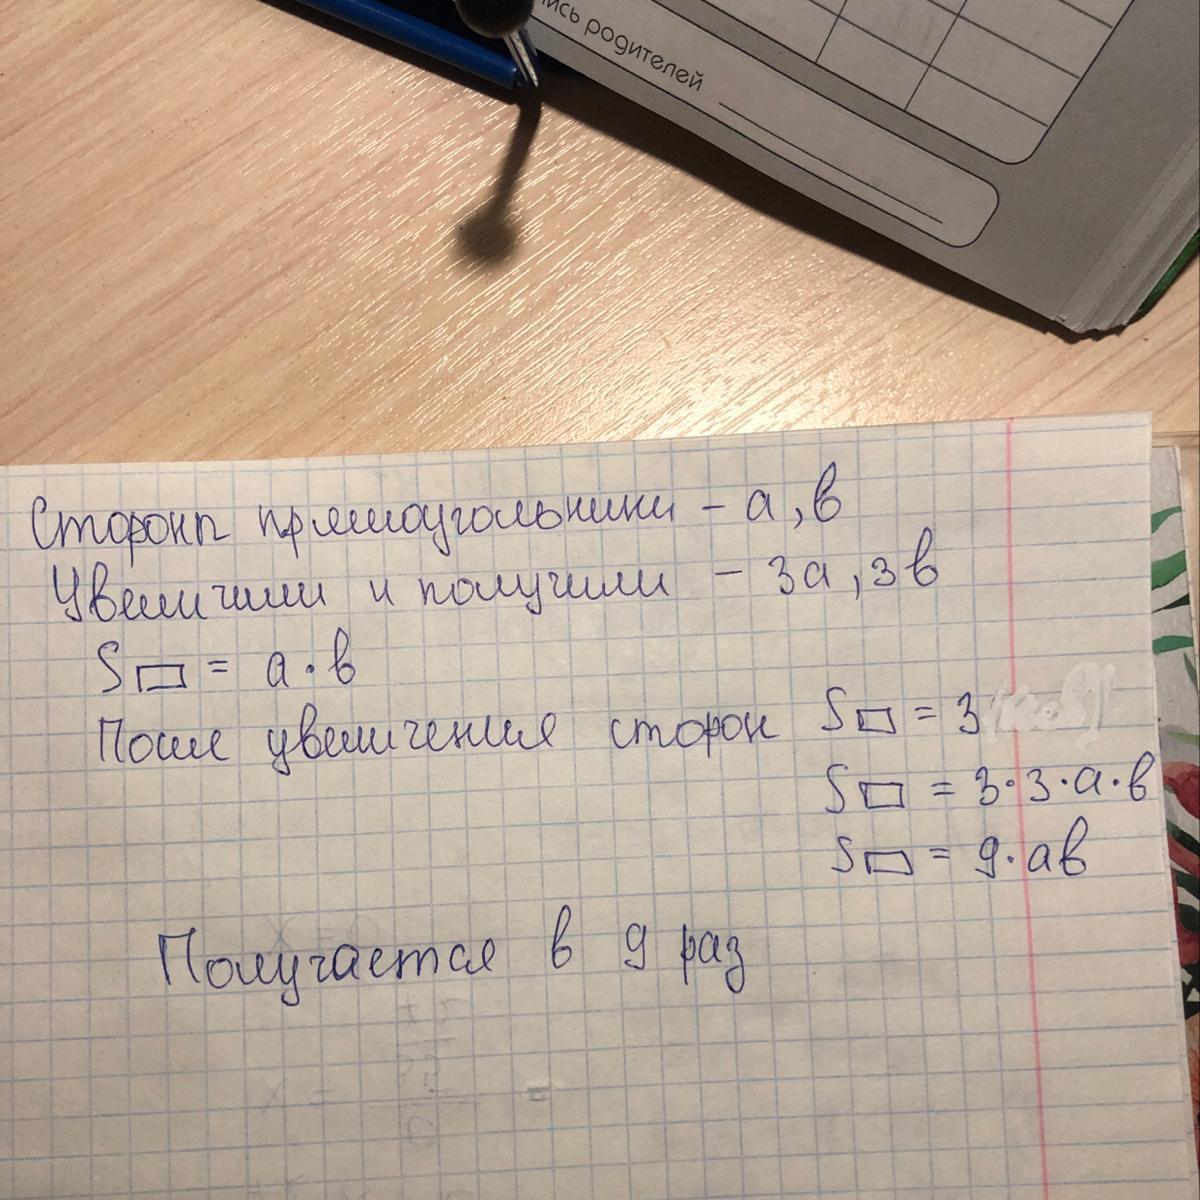 ись родителей
Стороны прямоугольники - а, в
Увеличили и получили - 3а, 3в
S▭ = а·в
После увеличения сторон S▭ = 3
S▭ = 3·3·а·в
S▭ = 9·ав
Получается в 9 раз